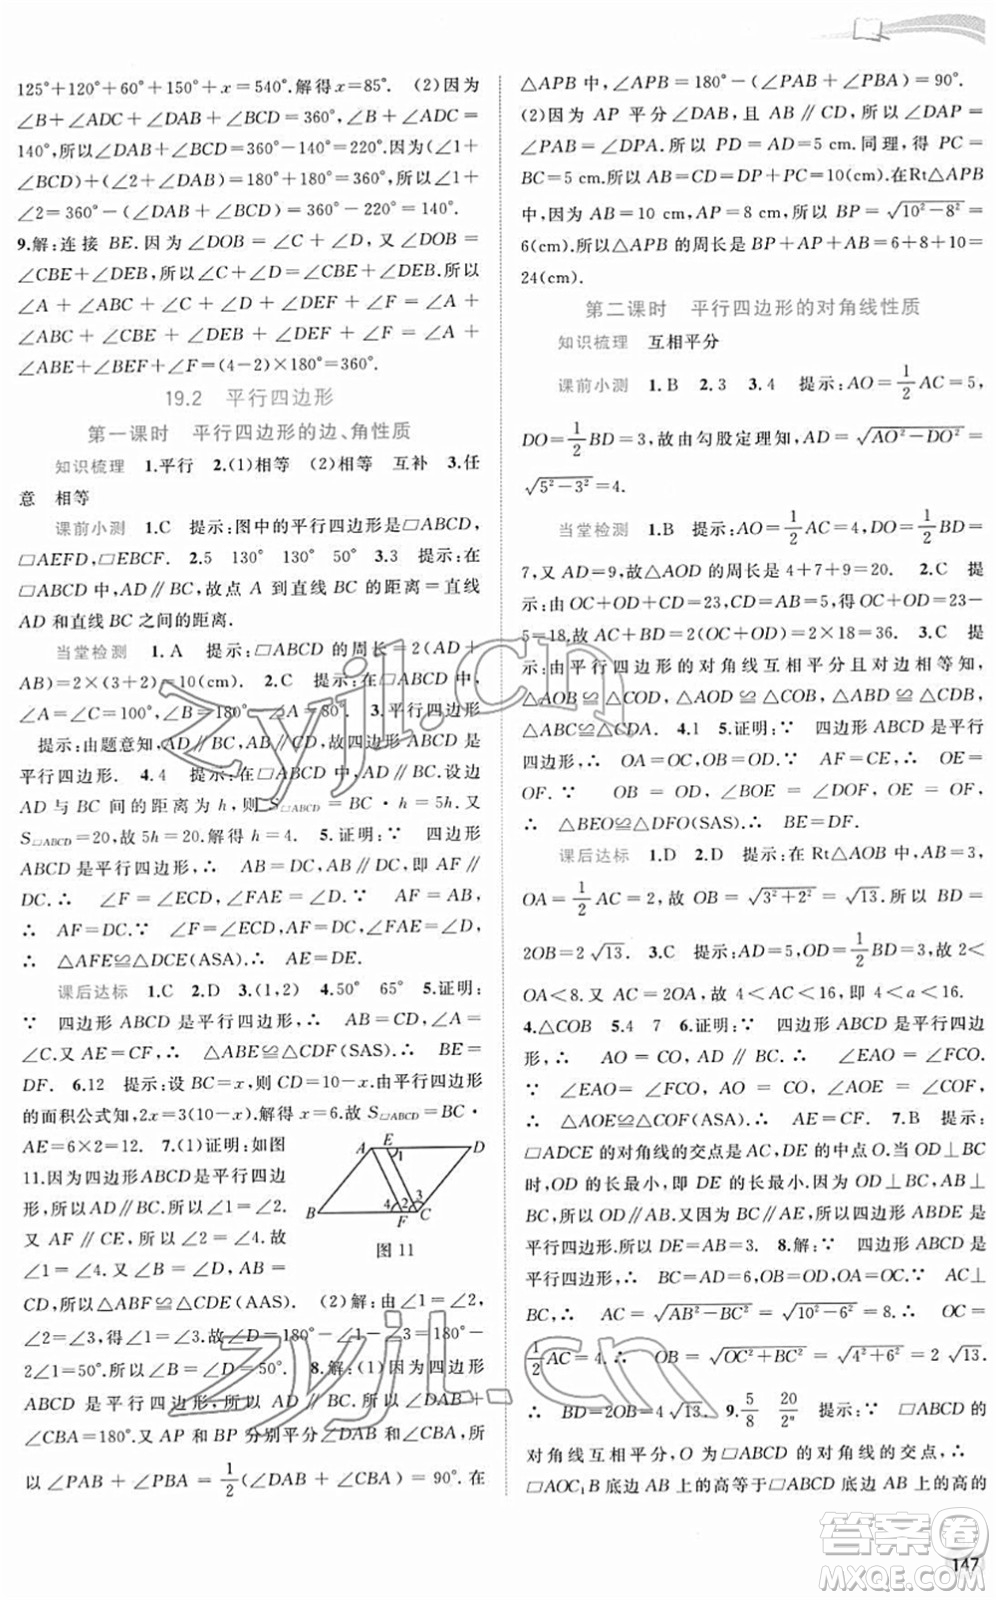 125°+120°+60°+150°+x=540°.解得x=85°.　(2)因为
∠B+∠ADC+∠DAB+∠BCD=360°,∠B+∠ADC=
140°,所以∠DAB+∠BCD=360°-140°=220°.因为∠1+
∠BCD+∠2+∠DAB)=180°+180°=360°,所以∠1+
∠2=360°-(∠DAB+∠BCD)=360°-220°=140°.
9.解:连接 BE.因为∠DOB=∠C+∠D,又∠DOB=
∠CBE+∠DEB,所以∠C+∠D=∠CBE+∠DEB.所以
∠A+∠ABC+∠C+∠D+∠DEF+∠F=∠A+
∠ABC+∠CBE+∠DEB+∠DEF+∠F=∠A+
∠ABE+∠BEF+∠F=(4-2)×180°=360°.
19.2　平行四边形
第一课时　平行四边形的边、角性质
知识梳理　1.平行　2.(1)相等　(2)相等　互补　3.任
意　相等
课前小测　1.C　提示:图中的平行四边形是▱ABCD,
▱AEFD,▱EBCF.　2.5　130°　130°　50°　3.3　提示:在
▱ABCD中,AD∥BC,故点 A 到直线 BC 的距离=直线
AD和直线BC之间的距离.
当堂检测　1.A　提示:▱ABCD的周长=2(AD+
AB)=2×(3+2)=10(cm).　2.C　提示:在▱ABCD中,
∠A=∠C=100°,∠B=180°-∠A=80°.　3.平行四边形
提示:由题意知,AD∥BC,AB∥CD,故四边形ABCD是
平行四边形.　4.4　提示:在▱ABCD中,AD∥BC.设边
AD 与 BC 间的距离为 h,则 S▱ABCD=BC·h=5h.又
S▱ABCD=20,故5h=20.解得 h=4.　5.证明:∵　四边形
ABCD是平行四边形,∴　AB=DC,AB∥DC,即 AF∥
DC.∴　∠F=∠ECD,∠FAE=∠D.又 AF=AB,
∴　AF=DC.∵　∠F=∠ECD,∠FAE=∠D,
∴　△AFE≌△DCE(ASA).∴　AE=DE.
课后达标　1.C　2.D　3.(1,2)　4.50°　65°　5.证明:
∵　四边形 ABCD 是平行四边形,∴　AB=CD,∠A=
∠C.又 AE=CF,∴　△ABE≌△CDF(SAS).∴　BE=
DF.　6.12　提示:设 BC=x,则 CD=10-x.由平行四边形
的面积公式知,2x=3(10-x).解得 x=6.故 S▱ABCD=BC·
AE=6×2=12.　7.(1)证明:如图
11.因为四边形ABCD是平行四边
形,所以AD∥BC.所以∠1=∠2.
又 AF∥CE,所以∠2=∠4.故
∠1=∠4.又∠B=∠D,AB=
CD,所以△ABF≌△CDE(AAS).　(2)解:由∠1=∠2,
∠2=∠3,得∠1=∠3.故∠D=180°-∠1-∠3=180°-
2∠1=50°.所以∠B=∠D=50°.　8.解:(1)因为四边形
ABCD是平行四边形,所以AD∥BC.所以∠DAB+
∠CBA=180°.又 AP 和 BP 分别平分∠DAB 和∠CBA,所
以∠PAB+∠PBA=1/2(∠DAB+∠CBA)=90°.在
A E D
1
4 2 3
B F C
图 11
△APB中,∠APB=180°-(∠PAB+∠PBA)=90°.
(2)因为 AP 平分∠DAB,且 AB∥CD,所以∠DAP=
∠PAB=∠DPA.所以 PD=AD=5 cm.同理,得 PC=
BC=5 cm.所以AB=CD=DP+PC=10(cm).在Rt△APB
中,AB=10 cm,AP=8 cm,所以 BP=√(10²-8²)=
6(cm).所以△APB的周长是BP+AP+AB=6+8+10=
24(cm).
第二课时　平行四边形的对角线性质
知识梳理　互相平分
课前小测　1.B　2.3　3.4　提示:AO=1/2AC=5,
DO=1/2BD=3.故由勾股定理知,AD=√(AO²-DO²)=
√(5²-3²)=4.
当堂检测　1.B　提示:AO=1/2AC=4,DO=1/2BD=
7,又 AD=9,故△AOD的周长是4+7+9=20.　2.C　提
示:由 OC+OD+CD=23,CD=AB=5,得OC+OD=23-
5=18.故AC+BD=2(OC+OD)=2×18=36.　3.C　提
示:由平行四边形的对角线互相平分且对边相等知,
△AOB≌△COD,△AOD≌△COB,△ABD≌△CDB,
△ABC≌△CDA.　4.1　5.证明:∵　四边形ABCD是平行
四边形,∴　OA=OC,OB=OD.又 AE=CF,∴　OE=
OF.　∵　OB=OD,∠BOE=∠DOF,OE=OF,
∴　△BEO≌△DFO(SAS).∴　BE=DF.
课后达标　1.D　2.D　提示:在 Rt△AOB 中,AB=3,
OA=1/2AC=2,故 OB=√(3²+2²)=√13.所以 BD=
2OB=2√13.　3.C　提示:AD=5,OD=1/2BD=3,故 2<
OA<8.又 AC=2OA,故 4<AC<16,即4<a<16.
4.△COB　5.4　7　6.证明:∵　四边形 ABCD是平行四边
形,∴　AO=CO,AD∥BC.∴　∠EAO=∠FCO.
∵　∠EAO=∠FCO,AO=CO,∠AOE=∠COF,
∴　△AOE≌△COF(ASA).∴　AE=CF.　7.B　提示:
▱ADCE的对角线的交点是 AC,DE 的中点 O.当 OD⊥BC
时,OD 的长最小,即 DE 的长最小.因为 OD⊥BC,AB⊥
BC,所以OD∥AB.又 BC∥AE,所以四边形 ABDE 是
平行四边形.所以 DE=AB=3.　8.解:∵　四边形ABCD是
平行四边形,∴　BC=AD=6,CD=AB=10.∵　AC⊥
BC,∴　AC=√(AB²-BC²)=√(10²-6²)=8.∴　OC=
1/2AC=4.∴　OB=√(OC²+BC²)=√(4²+6²)=2√13.
∴　BD=2OB=4√13.　9.5/8　20/2ⁿ　提示:∵　▱ABCD的
对角线互相平分,O 为▱ABCD 的对角线的交点,∴
▱AOC₁B 底边 AB 上的高等于▱ABCD 底边 AB 上的高的
147
zyjl.cn
zyjl.cn
答案圈
MXQE.COM